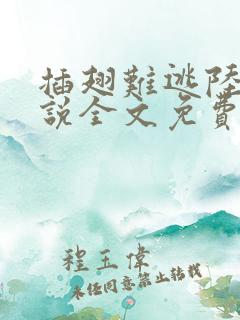 插翅難逃陸
說全文免費
程玉偉
未經同意禁止轉載